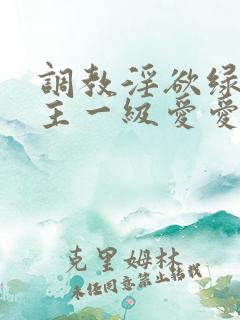 調教淫欲绿
主一級爱爱
克里姆林
未经同意禁止转载